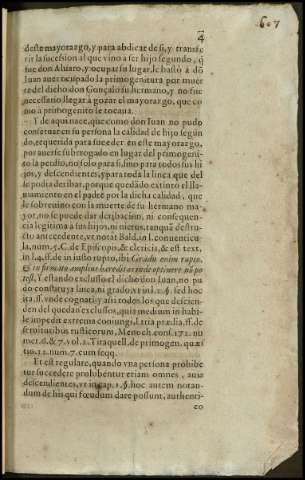 607
4
deste mayorazgo, y para abdicar de si, y transfe
rir la sucession al que vino a ser hijo segundo, q̃
fue don Aluaro, y ocupar su lugar, le bastò à dõ
Iuan auer ocupado la primogenitura por muer
te del dicho don Gonçalo su hermano, y no fue
necessario llegar à gozar el mayorazgo, que co
mo à primogenito le tocaua.
Y de aqui nace, que como don Iuan no pudo
conseruar en su persona la calidad de hijo segun
do, requerida para suceder en este mayorazgo,
por auerse subrogado en lugar del primogeni-
to la perdio, no solo para si, sino para todos sus hi
jos, y descendientes, y para toda la linea que del
se podia deribar, porque quedãdo extinto el lla-
mamiento en el padre por la dicha calidad, que
le sobreuino con la muerte de su hermano ma
yor, no se puede dar deribacion, ni consequen-
cia legitima à sus hijos, ni nietos, tanquã destru-
cto antecedente, vt notat Bald. in l. conuenticu-
la, num. 5. C. de Episcopis, & clericis, & est text.
in l. 4. ff. de iniusto rupto, ibi: Gradu enim rupto,
& infirmato amplius hæreditas inde optinere nõ po
test. Y estando exclusso el dicho don Iuan, no pu
do constituyr linea, ni grado, vt in l. 1. §. sed hoc
ita, ff. vnde cognati, y assi todos los que descien-
den del quedan exclussos, quia medium in habi-
le impedit extrema coniungi, l. tria prædia, ff. de
seruitutibus rusticorum, Menoch. cons. 172. nu
mer. 6. & 7. vol. 2. Tiraquell. de primogen. quæs
tio. 12. num. 7. cum seqq.
Et est regulare, quando vna persona prohibe
tur succedere prohibentur etiam omnes, ab ea
descendientes, vt in cap. 1. §. hoc autem notan-
dum de his qui fœudum dare possunt, authenti-
co